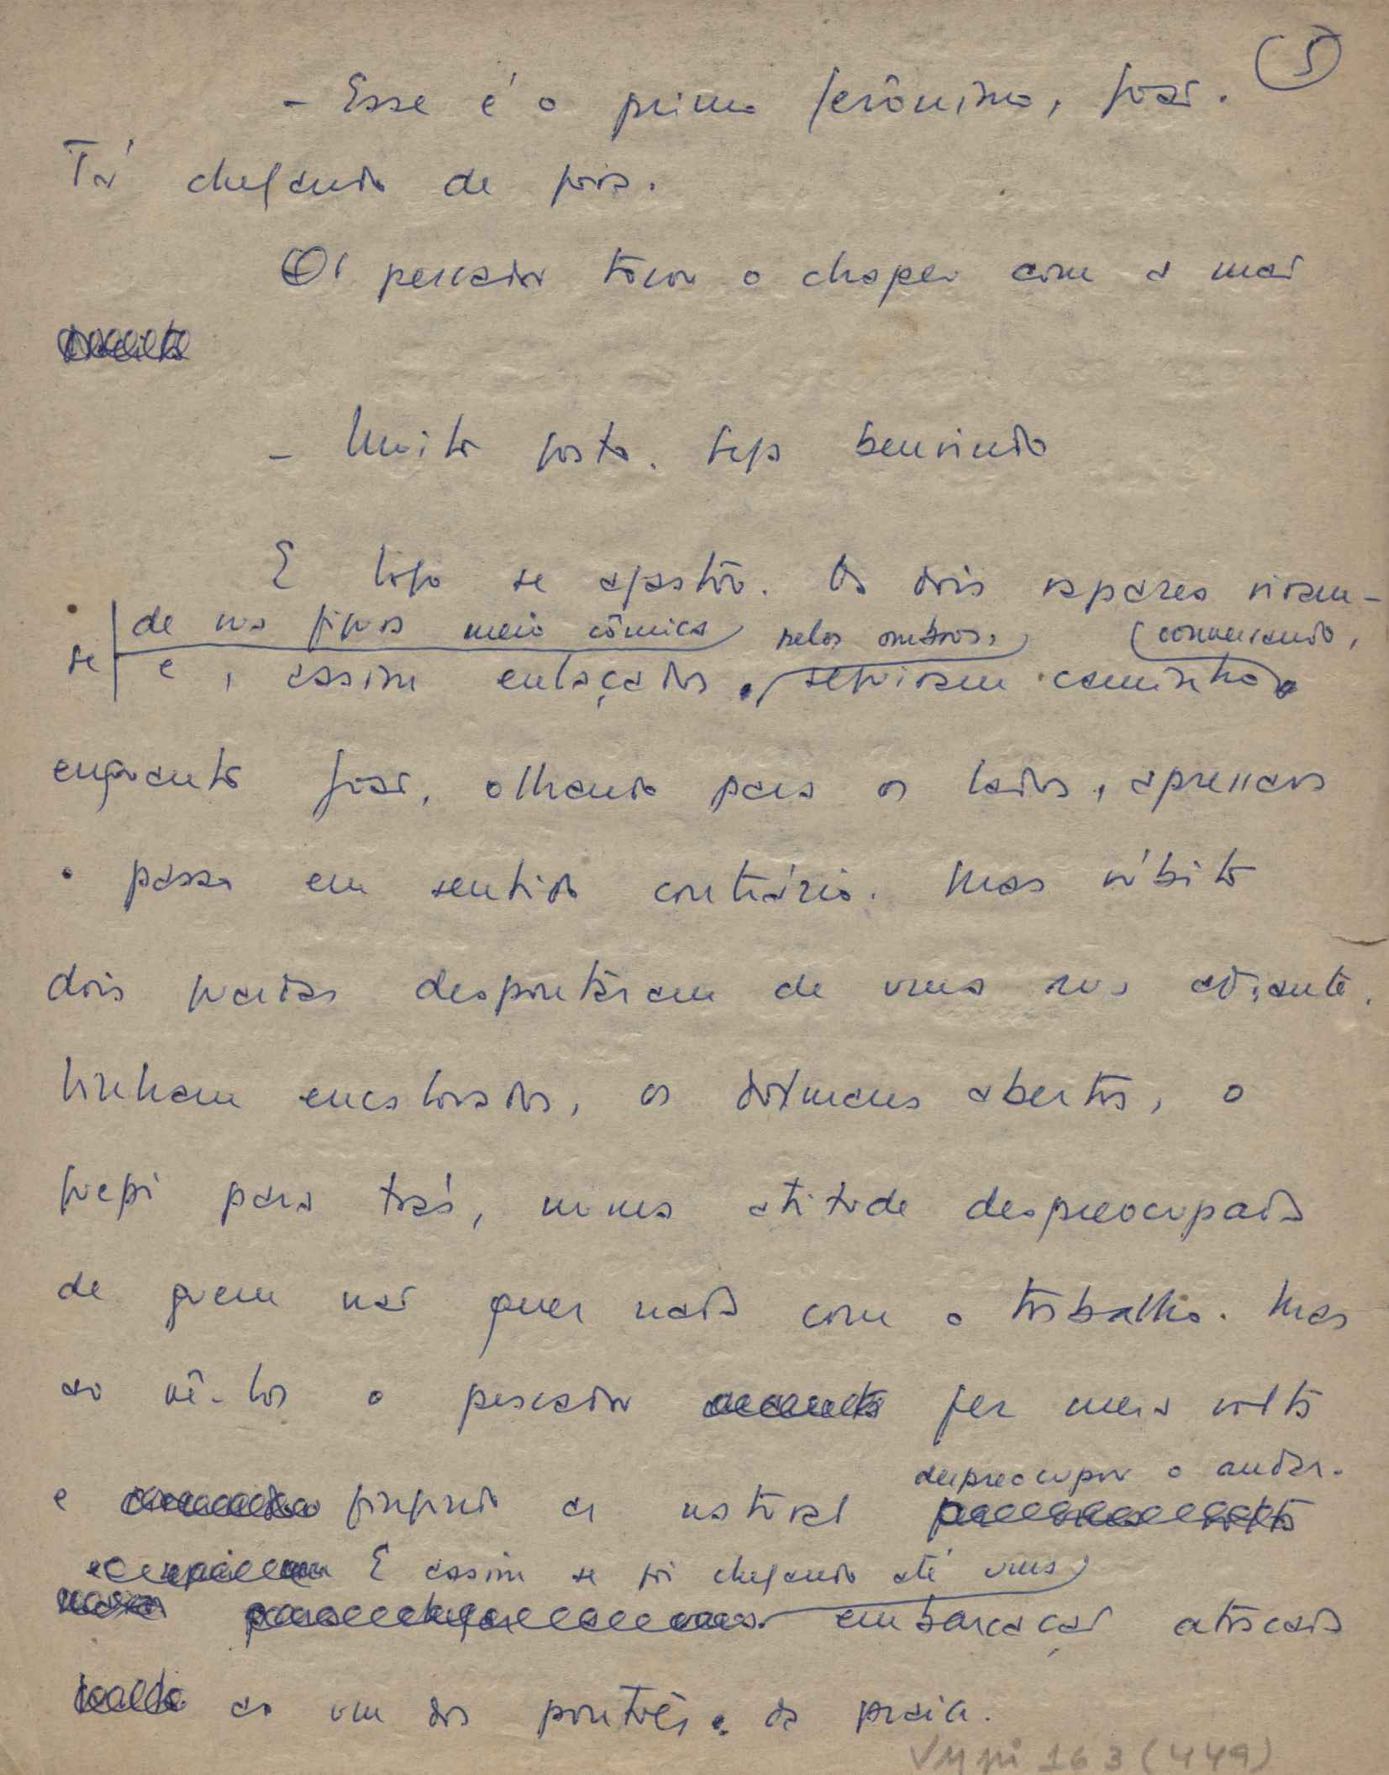 5
- Esse é o primo Jerônimo, José.
Tá chegando de fora.
O pescador tocou o chapeu com a mão
- Muito gosto. Seja benvindo
E logo se afastou. Os dois rapazes viram-
de sua figura meio cômica pelos ombros, conversando,
se e, assim enlaçados, seguiram caminho
enquanto José, olhando para os lados, apressava
o passo em sentido contrário. Mas súbito
dois guardas despontaram de uma rua adiante.
Tinham encalorados, os dolmans abertos, o
quepi para trás, numa atitude despreocupada
de quem não quer nada com o trabalho. Mas
ao vê-los o pescador fez meia volta
despreocupou o andar.
e fingindo ar natural
E assim se foi chegando até uma
embarcação atracada
ao um dos pontões da praia.
VMpi 163 (449)